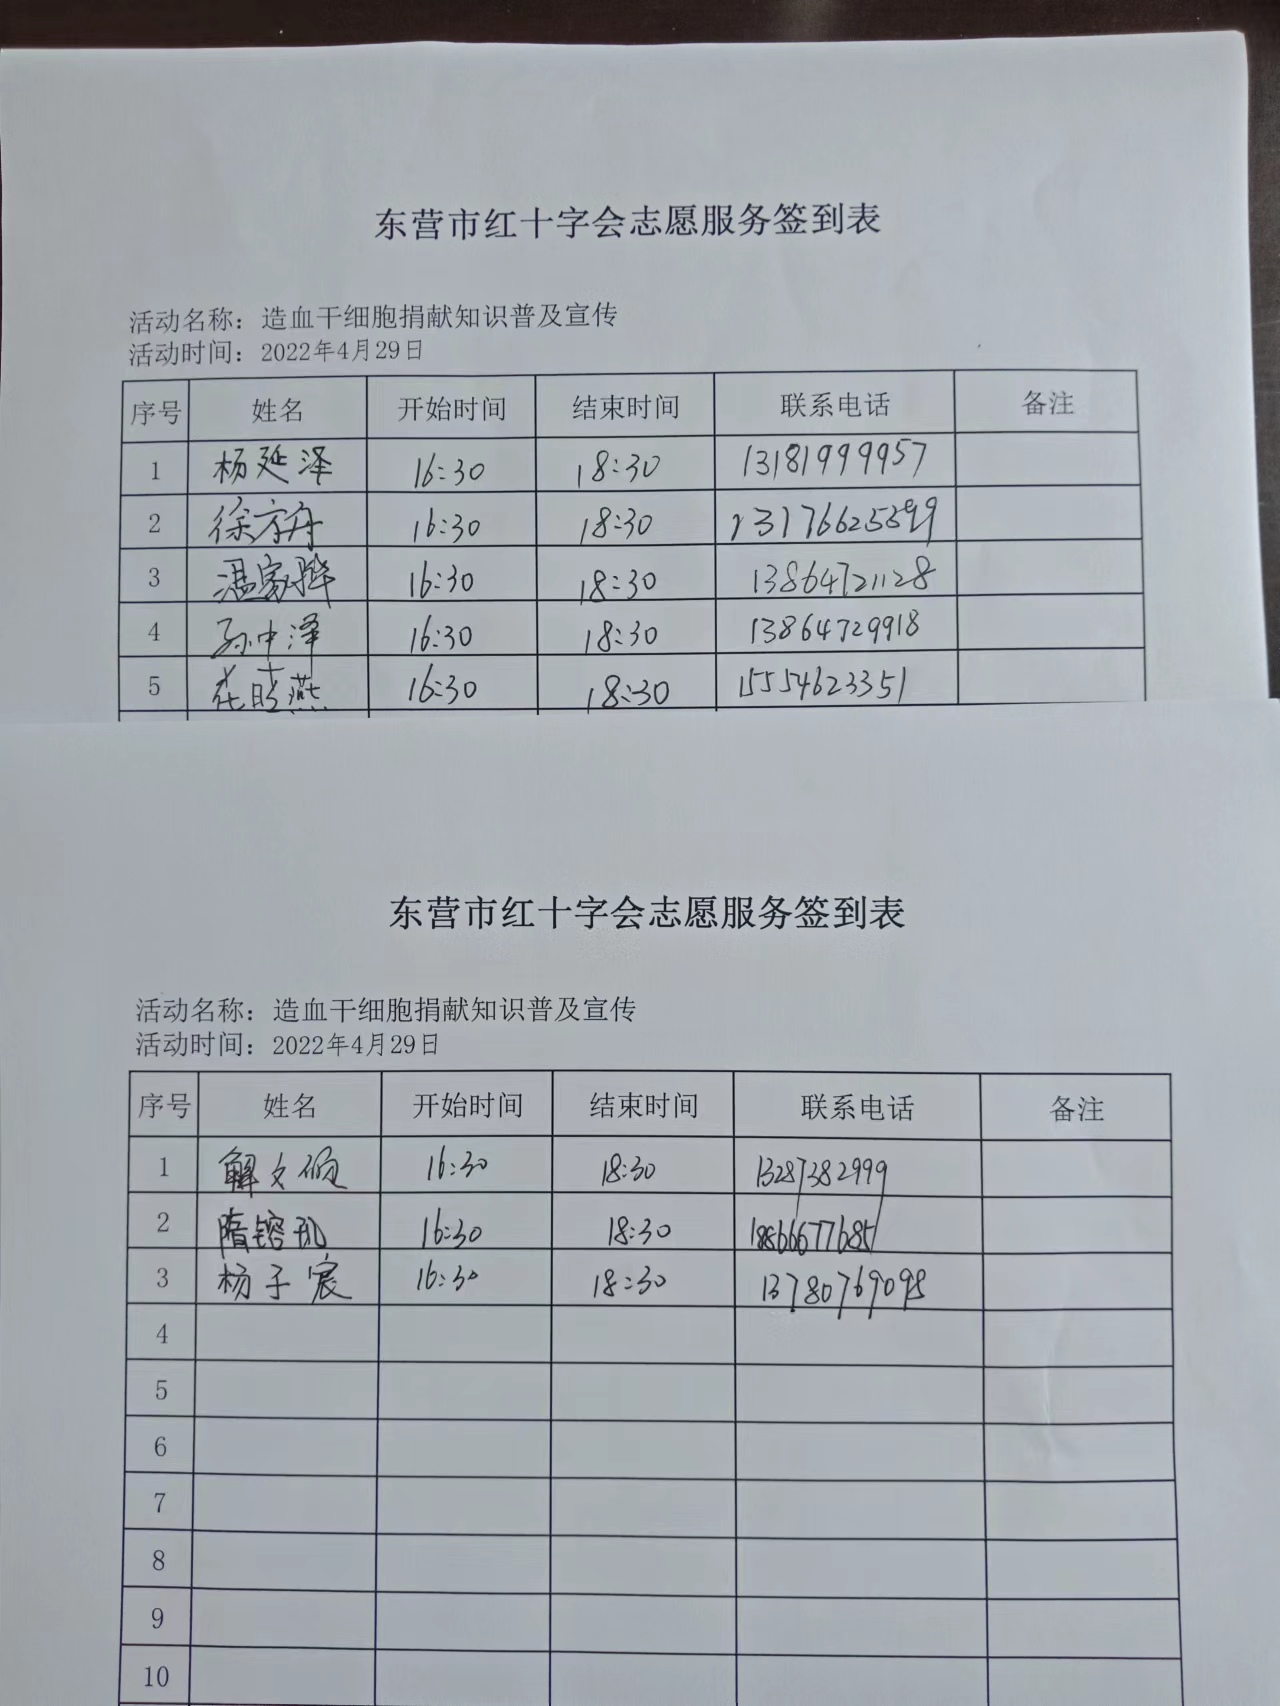 东营市红十字会志愿服务签到表
活动名称：造血干细胞捐献知识普及宣传
活动时间：2022年4月29日
序号 姓名 开始时间 结束时间 联系电话 备注
1 杨延泽 16:30 18:30 13181999957
2 徐方舟 16:30 18:30 13176625899
3 温家骅 16:30 18:30 13864721128
4 孙中泽 16:30 18:30 13864729918
5 16:30 18:30 15554623351
东营市红十字会志愿服务签到表
活动名称：造血干细胞捐献知识普及宣传
活动时间：2022年4月29日
序号 姓名 开始时间 结束时间 联系电话 备注
1 解文硕 16:30 18:30 13287382999
2 16:30 18:30 18866677685
3 杨子宸 16:30 18:30 13780769098
4
5
6
7
8
9
10